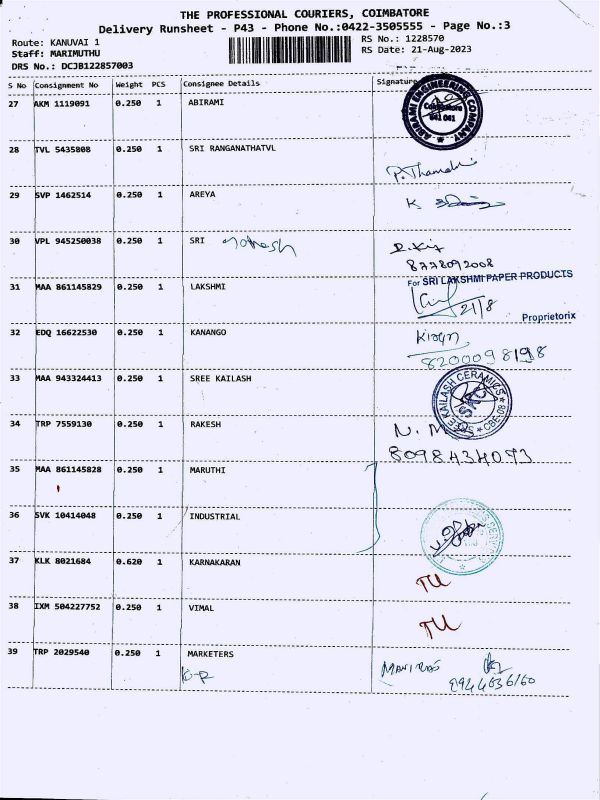 THE PROFESSIONAL COURIERS, COIMBATORE
Delivery Runsheet - P43 - Phone No.:0422-3505555 - Page No.:3
Route: KANUVAI 1
Staff: MARIMUTHU
DRS No.: DCJB122857003
RS No.: 1228570
RS Date: 21-Aug-2023
S No Consignment No Weight PCS Consignee Details Signature
27 AKM 1119091 0.250 1 ABIRAMI
ABIRAMI ENGINEERING COMPANY
Coimbatore
641 041
28 TVL 5435808 0.250 1 SRI RANGANATHATVL
29 SVP 1462514 0.250 1 AREYA
K
30 VPL 945250038 0.250 1 SRI
8778092008
31 MAA 861145829 0.250 1 LAKSHMI
For SRI LAKSHMI PAPER PRODUCTS
21/8
Proprietorix
32 EDQ 16622530 0.250 1 KANANGO
8200098198
33 MAA 943324413 0.250 1 SREE KAILASH
SREE KAILASH CERAMICS
SKC
CBE-08
34 TRP 7559130 0.250 1 RAKESH
8098434073
35 MAA 861145828 0.250 1 MARUTHI
36 SVK 10414048 0.250 1 INDUSTRIAL
37 KLK 8021684 0.620 1 KARNAKARAN
TU
38 IXM 504227752 0.250 1 VIMAL
TU
39 TRP 2029540 0.250 1 MARKETERS
K-R
9944636160